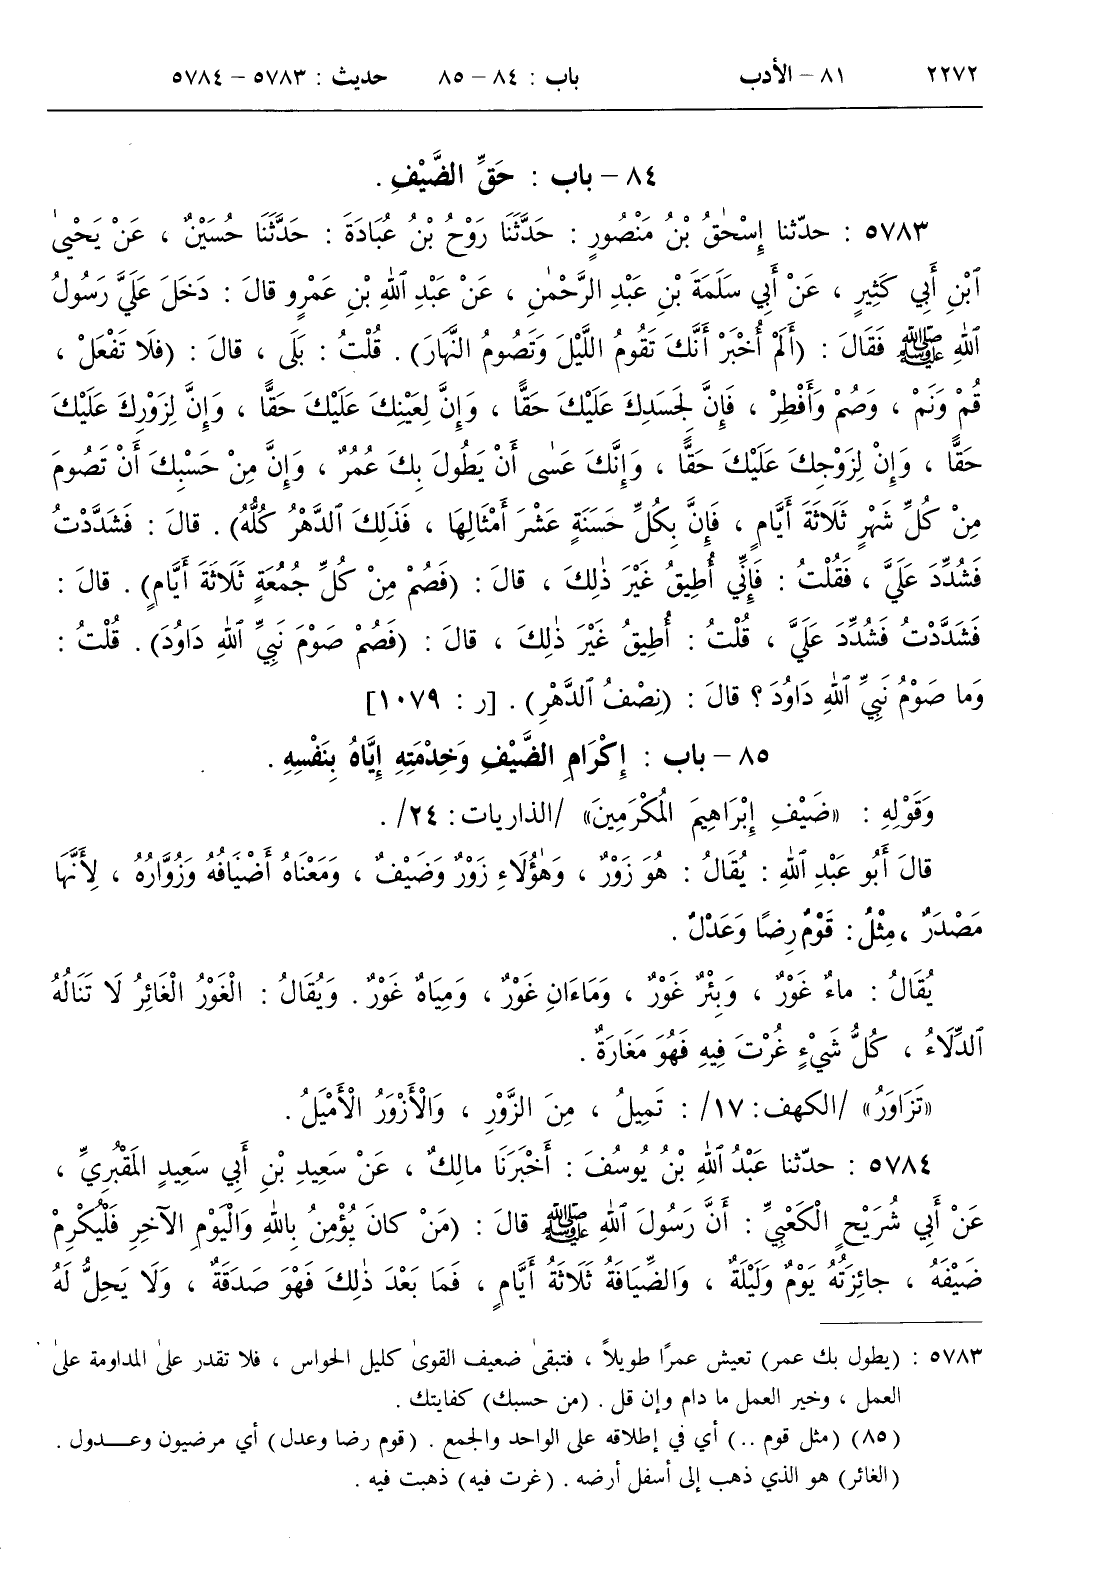 ٢٢٧٢ ٨١ – الأدب باب : ٨٤ – ٨٥ حديث : ٥٧٨٣ – ٥٧٨٤
٨٤ – باب : حَقِّ الضَّيْفِ .
٥٧٨٣ : حدّثنا إِسْحٰقُ بْنُ مَنْصُورٍ : حَدَّثَنَا رَوْحُ بْنُ عُبَادَةَ : حَدَّثَنَا حُسَيْنٌ ، عَنْ يَحْيىٰ
ٱبْنِ أَبِي كَثِيرٍ ، عَنْ أَبِي سَلَمَةَ بْنِ عَبْدِ الرَّحْمٰنِ ، عَنْ عَبْدِ ٱللهِ بْنِ عَمْرٍو قالَ : دَخَلَ عَلَيَّ رَسُولُ
ٱللهِ ﷺ فَقَالَ : (أَلَمْ أُخْبَرْ أَنَّكَ تَقُومُ اللَّيْلَ وَتَصُومُ النَّهَارَ) . قُلْتُ : بَلَى ، قالَ : (فَلَا تَفْعَلْ ،
قُمْ وَنَمْ ، وَصُمْ وَأَفْطِرْ ، فَإِنَّ لِجَسَدِكَ عَلَيْكَ حَقًّا ، وَإِنَّ لِعَيْنِكَ عَلَيْكَ حَقًّا ، وَإِنَّ لِزَوْرِكَ عَلَيْكَ
حَقًّا ، وَإِنَّ لِزَوْجِكَ عَلَيْكَ حَقًّا ، وَإِنَّكَ عَسٰى أَنْ يَطُولَ بِكَ عُمُرٌ ، وَإِنَّ مِنْ حَسْبِكَ أَنْ تَصُومَ
مِنْ كُلِّ شَهْرٍ ثَلَاثَةَ أَيَّامٍ ، فَإِنَّ بِكُلِّ حَسَنَةٍ عَشْرَ أَمْثَالِهَا ، فَذٰلِكَ ٱلدَّهْرُ كُلُّهُ) . قالَ : فَشَدَّدْتُ
فَشُدِّدَ عَلَيَّ ، فَقُلْتُ : فَإِنِّي أُطِيقُ غَيْرَ ذٰلِكَ ، قالَ : (فَصُمْ مِنْ كُلِّ جُمُعَةٍ ثَلَاثَةَ أَيَّامٍ) . قالَ :
فَشَدَّدْتُ فَشُدِّدَ عَلَيَّ ، قُلْتُ : أُطِيقُ غَيْرَ ذٰلِكَ ، قالَ : (فَصُمْ صَوْمَ نَبِيِّ ٱللهِ دَاوُدَ) . قُلْتُ :
وَما صَوْمُ نَبِيِّ ٱللهِ دَاوُدَ ؟ قالَ : (نِصْفُ ٱلدَّهْرِ) . [ر : ١٠٧٩]
٨٥ – باب : إِكْرَامِ الضَّيْفِ وَخِدْمَتِهِ إِيَّاهُ بِنَفْسِهِ .
وَقَوْلِهِ : «ضَيْفِ إِبْرَاهِيمَ المُكْرَمِينَ» /الذاريات : ٢٤/ .
قالَ أَبُو عَبْدِ ٱللهِ : يُقَالُ : هُوَ زَوْرٌ ، وَهٰؤُلَاءِ زَوْرٌ وَضَيْفٌ ، وَمَعْنَاهُ أَضْيَافُهُ وَزُوَّارُهُ ، لِأَنَّهَا
مَصْدَرٌ ، مِثْلُ : قَوْمٌ رِضًا وَعَدْلٌ .
يُقَالُ : ماءٌ غَوْرٌ ، وَبِئْرٌ غَوْرٌ ، وَمَاءَانِ غَوْرٌ ، وَمِيَاهٌ غَوْرٌ . وَيُقَالُ : الْغَوْرُ الْغَائِرُ لَا تَنَالُهُ
ٱلدِّلَاءُ ، كُلُّ شَيْءٍ غُرْتَ فِيهِ فَهُوَ مَغَارَةٌ .
«تَزَاوَرُ» /الكهف : ١٧/ : تَمِيلُ ، مِنَ الزَّوْرِ ، وَالْأَزْوَرُ الْأَمْيَلُ .
٥٧٨٤ : حدّثنا عَبْدُ ٱللهِ بْنُ يُوسُفَ : أَخْبَرَنَا مالِكٌ ، عَنْ سَعِيدِ بْنِ أَبِي سَعِيدٍ المَقْبُرِيِّ ،
عَنْ أَبِي شُرَيْحٍ الْكَعْبِيِّ : أَنَّ رَسُولَ ٱللهِ ﷺ قالَ : (مَنْ كانَ يُؤْمِنُ بِٱللهِ وَالْيَوْمِ الآخِرِ فَلْيُكْرِمْ
ضَيْفَهُ ، جائِزَتُهُ يَوْمٌ وَلَيْلَةٌ ، وَالضِّيَافَةُ ثَلَاثَةُ أَيَّامٍ ، فَمَا بَعْدَ ذٰلِكَ فَهْوَ صَدَقَةٌ ، وَلَا يَحِلُّ لَهُ
٥٧٨٣ : (يطول بك عمر) تعيش عمرًا طويلاً ، فتبقىٰ ضعيف القوىٰ كليل الحواس ، فلا تقدر علىٰ المداومة علىٰ
العمل ، وخير العمل ما دام وإن قل . (من حسبك) كفايتك .
(٨٥) (مثل قوم ..) أي في إطلاقه على الواحد والجمع . (قوم رضا وعدل) أي مرضيون وعــدول .
(الغائر) هو الذي ذهب إلى أسفل أرضه . (غرت فيه) ذهبت فيه .